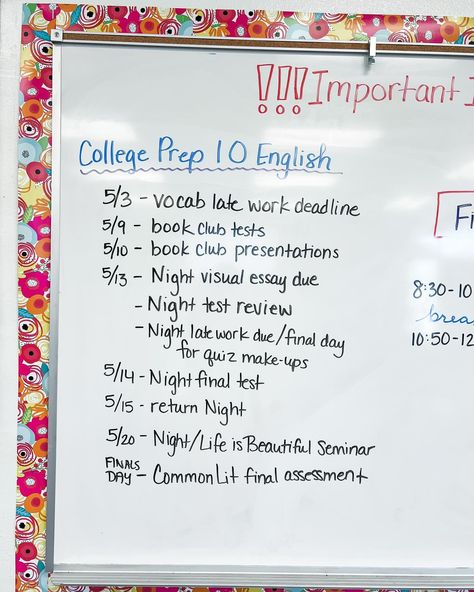 !!! Important
College Prep 10 English
5/3 - vocab late work deadline
5/9 - book club tests
5/10 - book club presentations
5/13 - Night visual essay due
- Night test review
- Night late work due/final day
for quiz make-ups
5/14 - Night final test
5/15 - return Night
5/20 - Night/Life is Beautiful Seminar
FINALS
DAY - CommonLit final assessment
Fi
8:30-10
brea
10:50-12